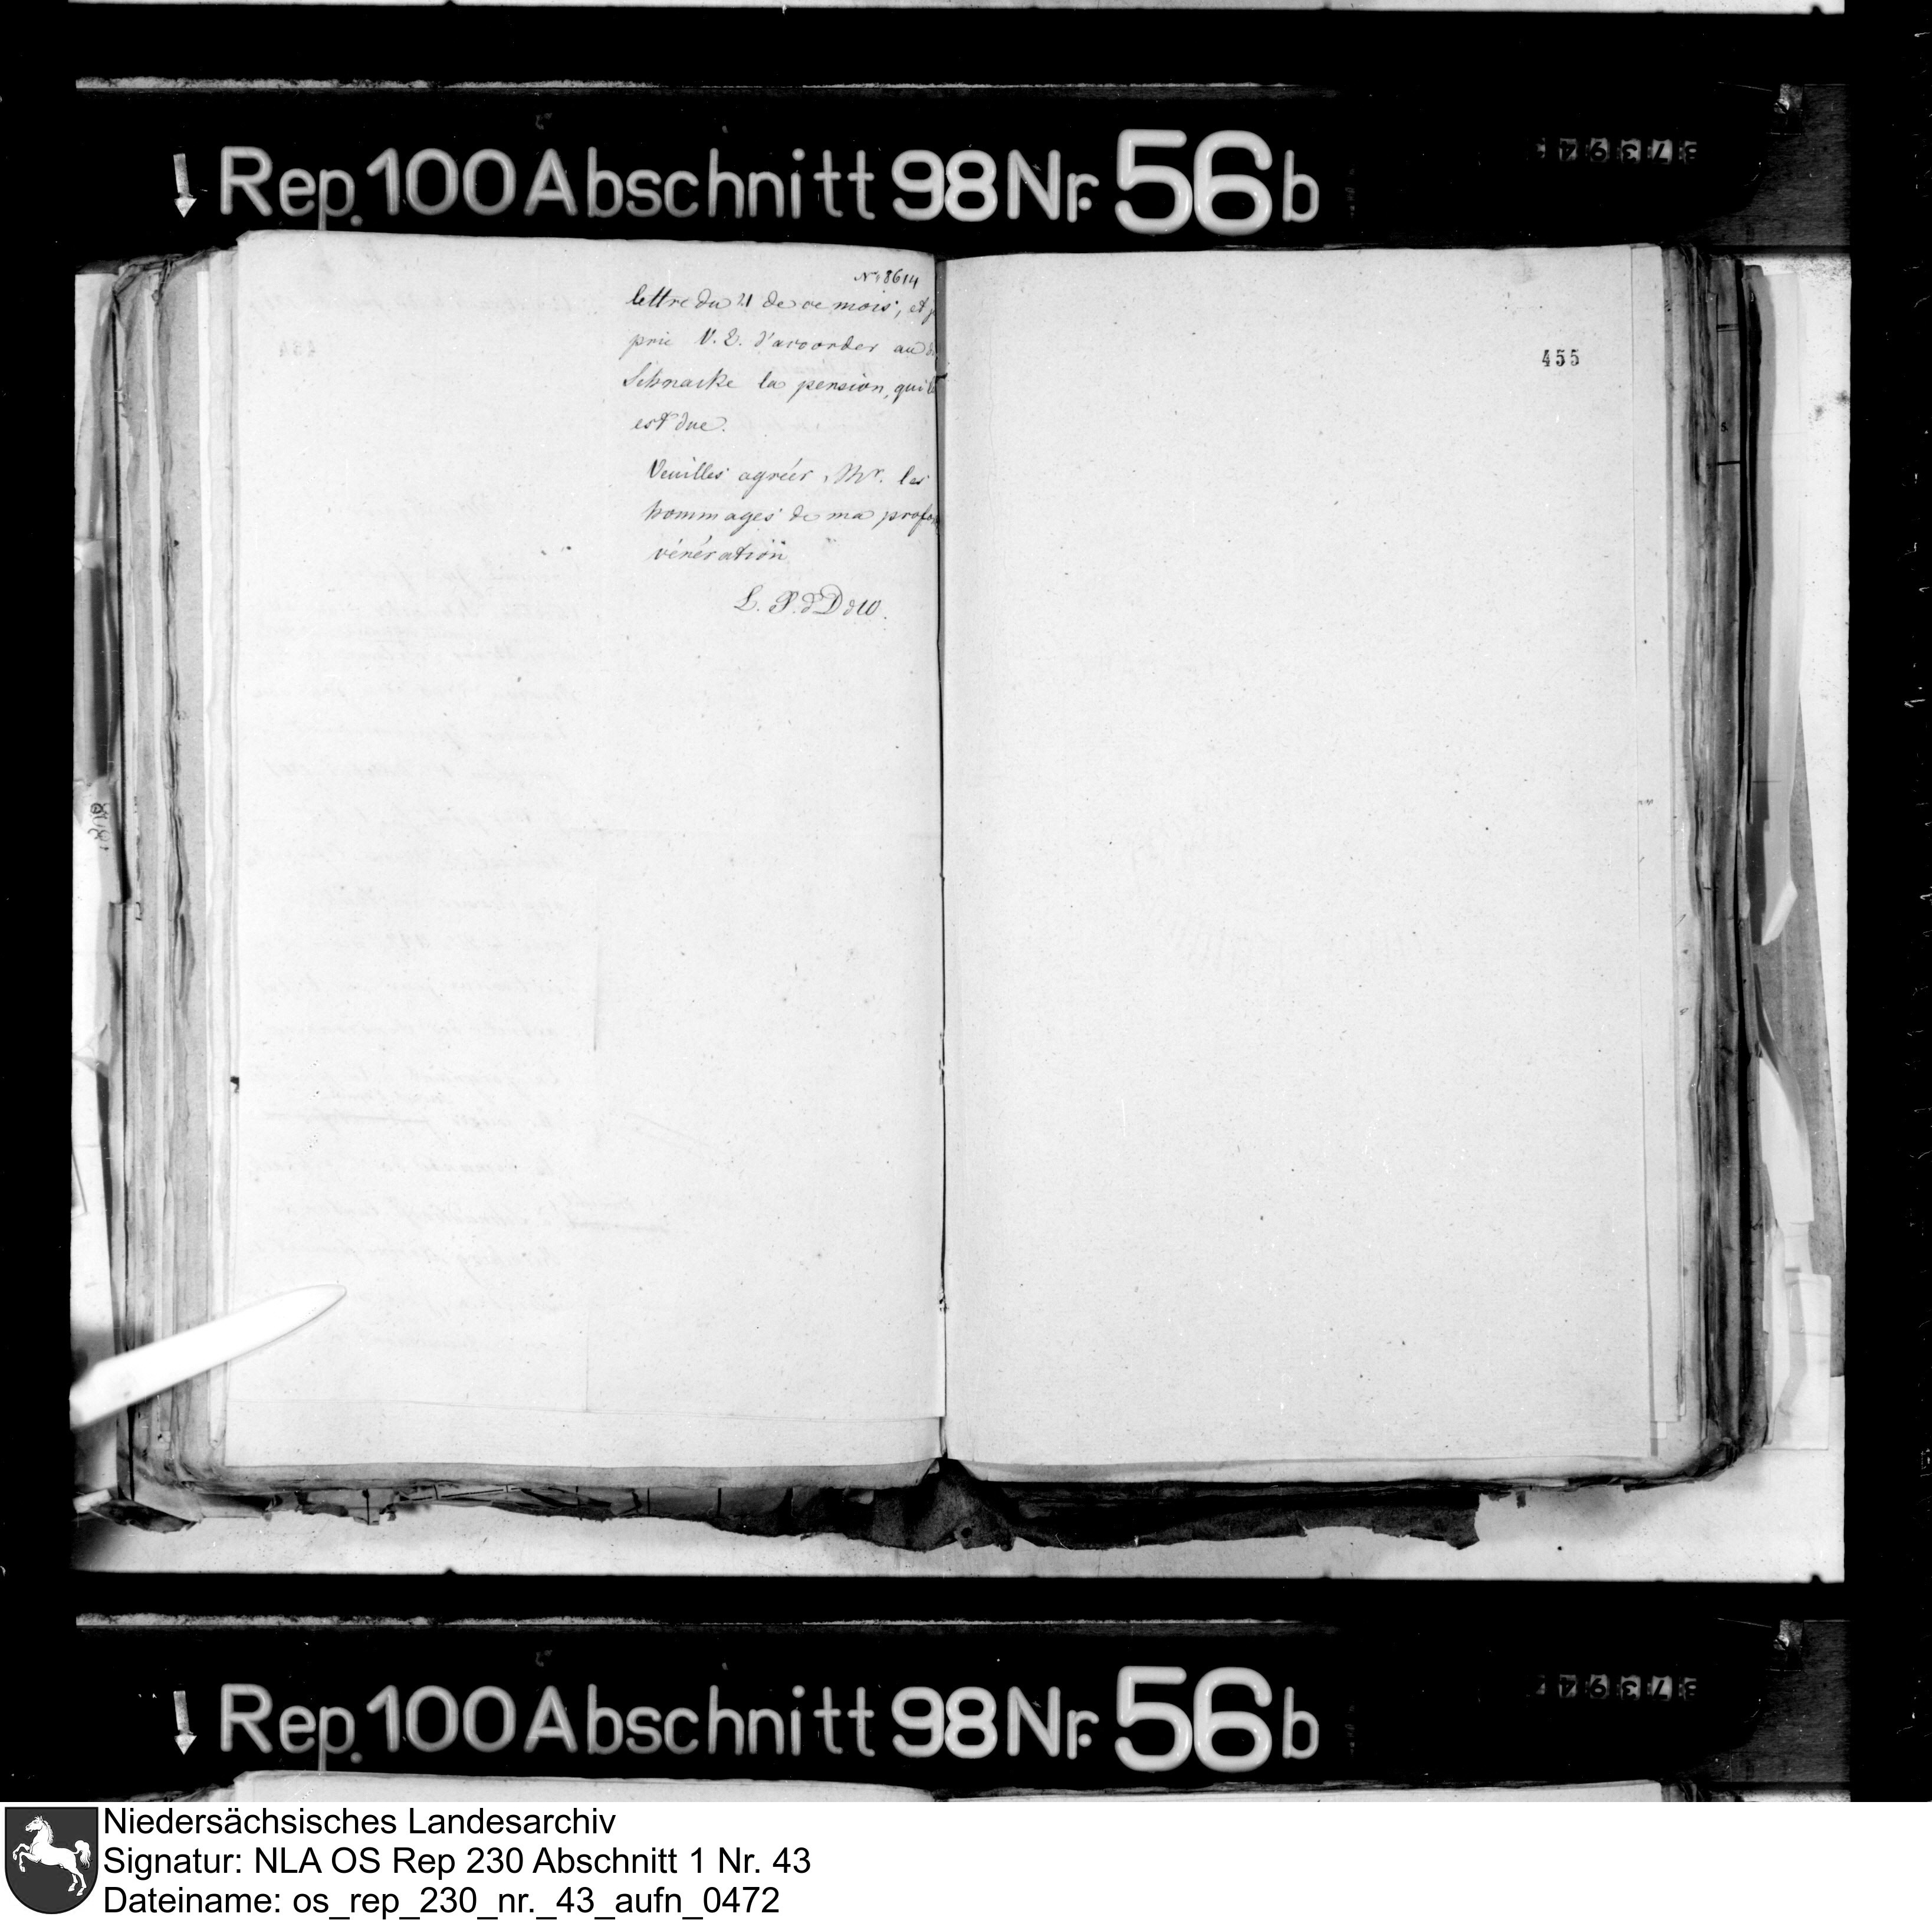 Rep. 100 Abschnitt 98 Nr. 56 b
No 8614
lettre du 21 de ce mois, et
prie V. E. d'accorder au
Schnacke la pension, qui
est due.
Veuilles agréér, Mr. les
hommages de ma
vénération
L. P. d D d W.
455
1808
Rep. 100 Abschnitt 98 Nr. 56 b
Niedersächsisches Landesarchiv
Signatur: NLA OS Rep 230 Abschnitt 1 Nr. 43
Dateiname: os_rep_230_nr._43_aufn_0472